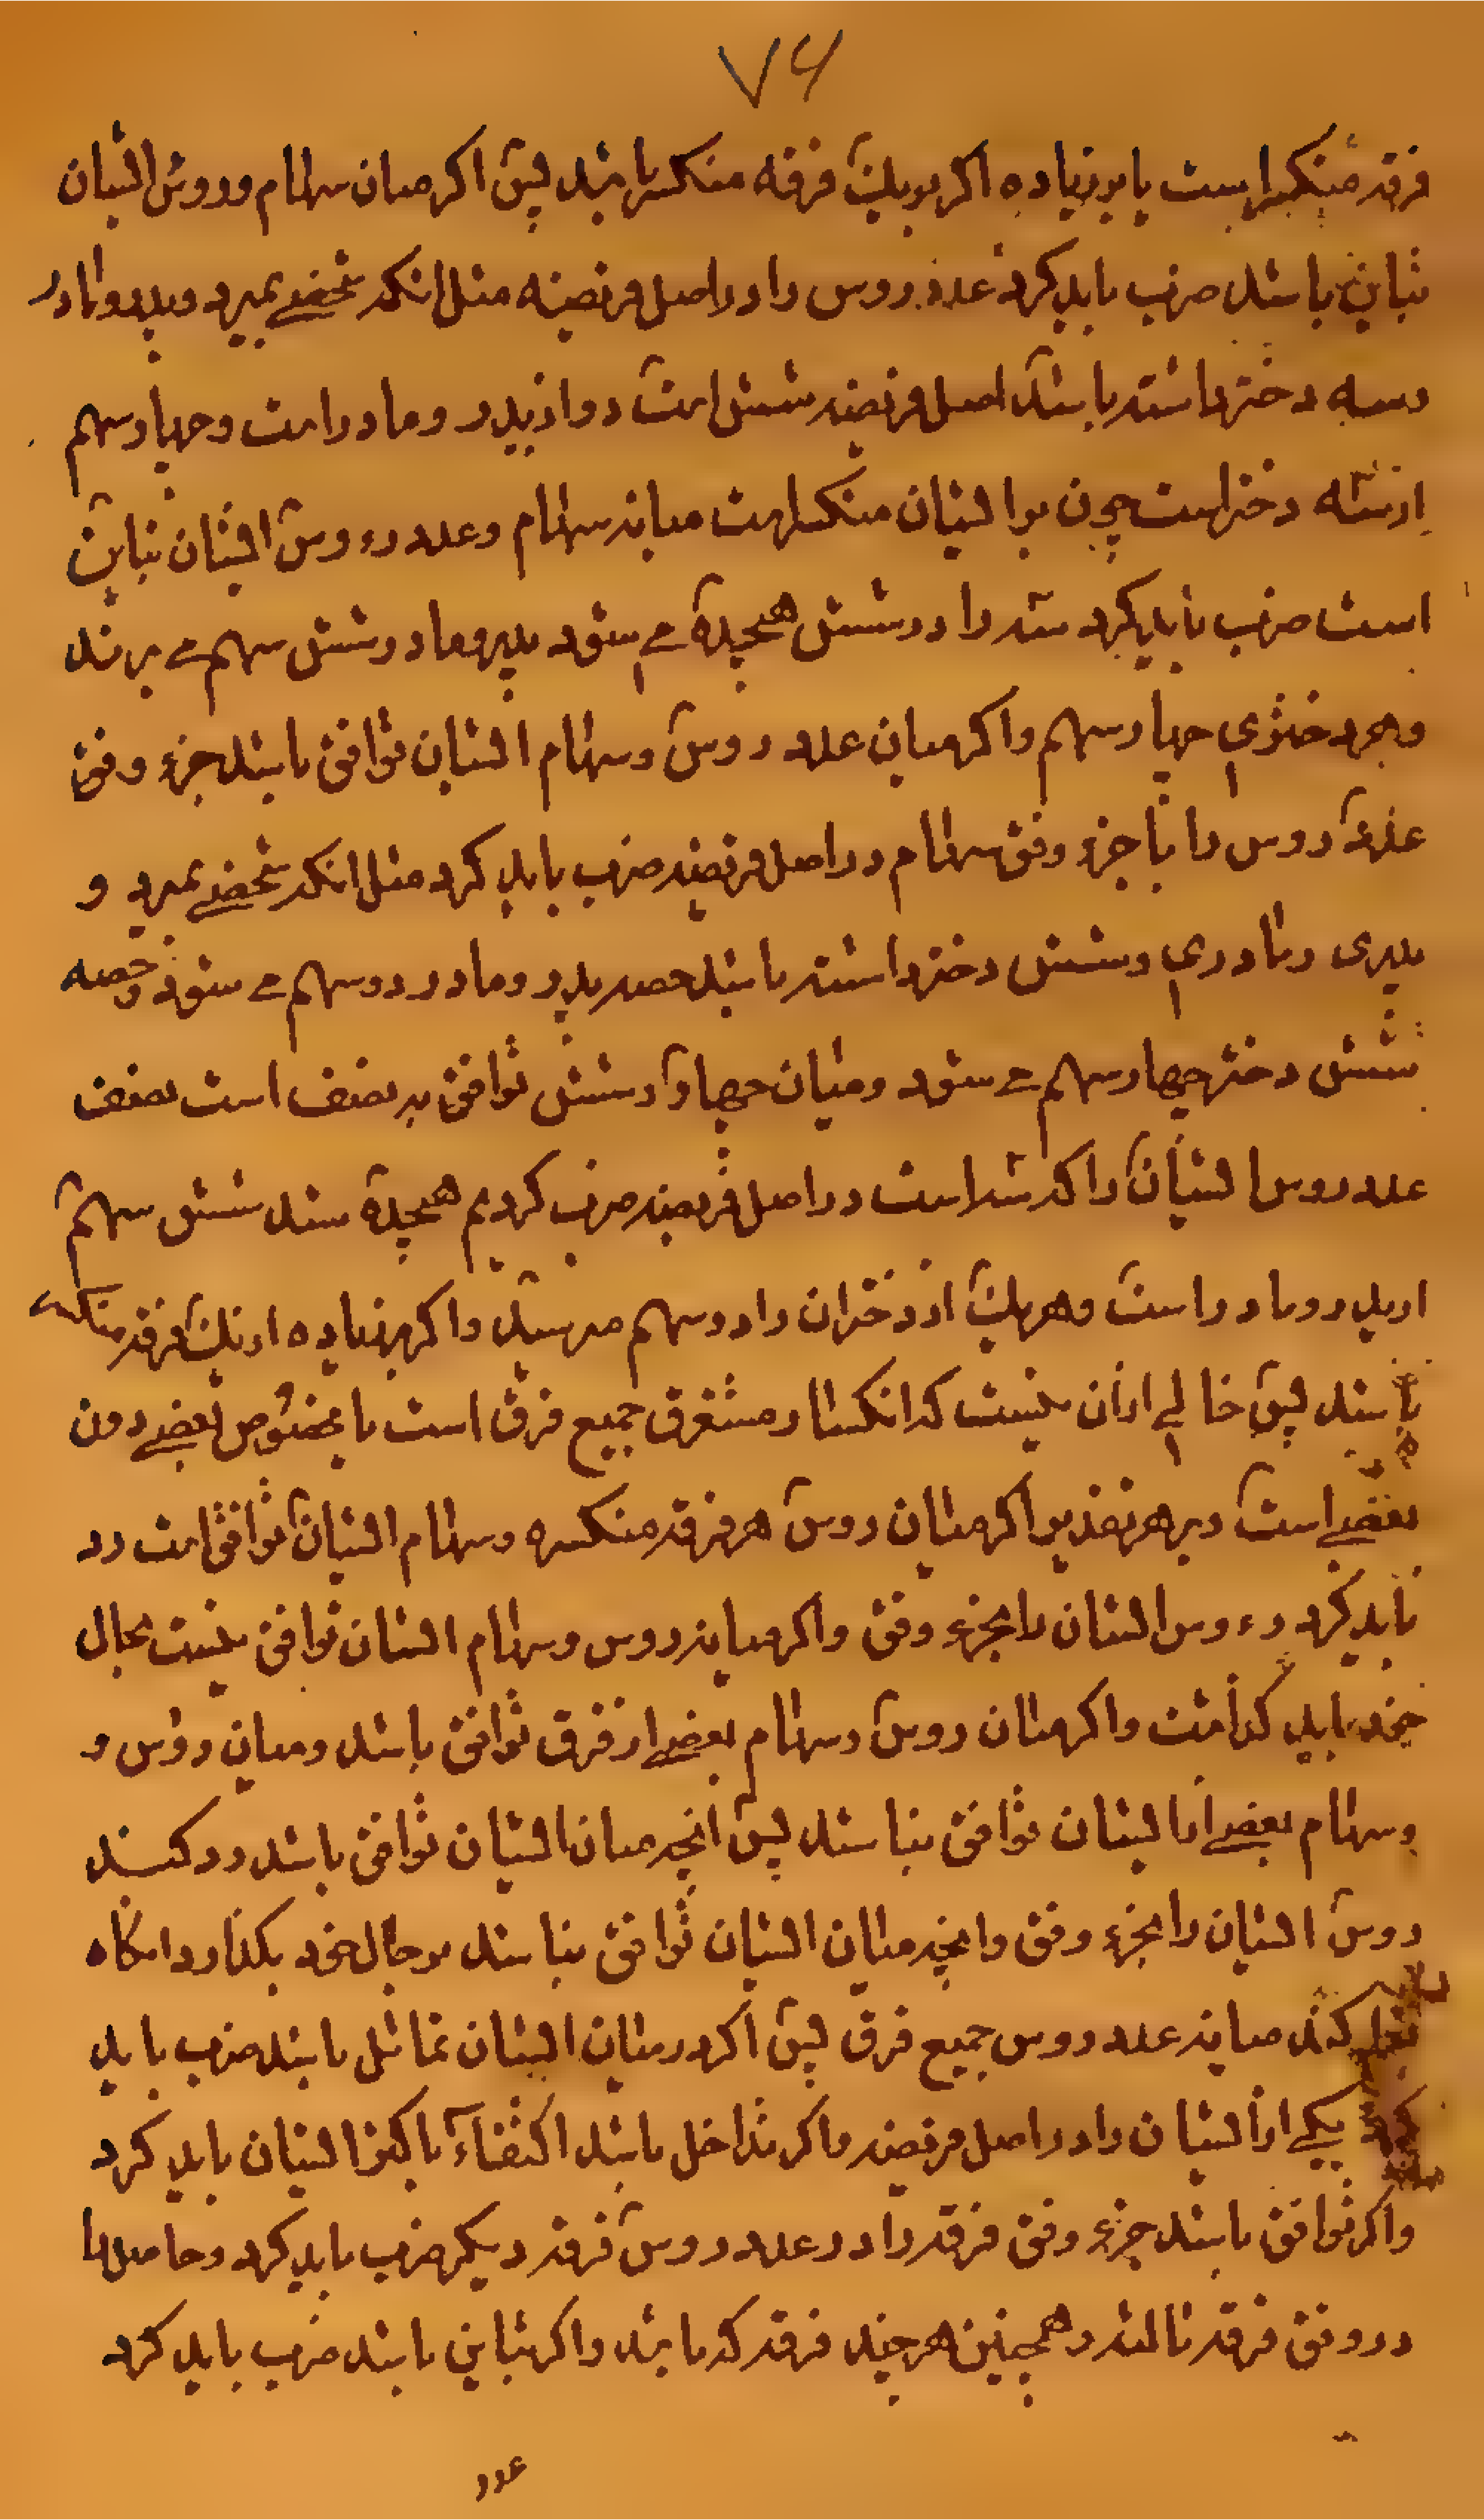 ۷۶
فرقه منکسر است یا بر زیاده اکر بر یک فرقه منکسر باشد پس اکر میان سهام و رؤس ایشان
تباین باشد ضرب باید کرد عدد رؤس را در اصل فریضه مثل انکه شخصی بمیرد و پدر و مادر
و سه دختر داشته باشد اصل فریضه شش است دو از پدر و مادر است و چهار سهم
از سه دختر است چون بر ایشان منکسر است میانه سهام و عدد رءوس ایشان تباین
است ضرب باید کرد سه را در شش هیجده می شود پدر و مادر شش سهم می برند
و هر دختری چهار سهم و اکر میان عدد رؤس و سهام ایشان توافق باشد جزء وفق
عدد رؤس را با جزء وفق سهام در اصل فریضه ضرب باید کرد مثل انکه شخصی بمیرد و
پدری و مادری و شش دختر داشته باشد حصه پدر و مادر دو سهم می شود و حصه
شش دختر چهار سهم می شود و میان چهار و شش توافق به نصف است نصف
عدد رؤس ایشان را که سه است در اصل فریضه ضرب کردیم هیجده شد شش سهم
از پدر و مادر است و هر یک از دختران را دو سهم میرسد و اکر بر زیاده از یک فرقه منکسر
باشد پس خالی از ان نیست که انکسار مستغرق جمیع فرق است یا مخصوص بعضی دون
بعضی است و بر هر تقدیر اکر میان رؤس هر فرقه منکسره و سهام ایشان توافق است رد
باید کرد رءوس ایشان را بجزء وفق و اکر میانه رؤس و سهام ایشان توافق نیست بحال
خود باید کذاشت و اکر میان رؤس و سهام بعضی از فرق توافق باشد و میان رؤس و
و سهام بعضی از ایشان توافق نباشد پس انچه میان ایشان توافق باشد رد کنند
رؤس ایشان را بجزء وفق و انچه میان ایشان توافق نباشد بر حال خود بکذارد انکاه
کند میانه عدد رؤس جمیع فرق پس اکر در میان ایشان تماثل باشد ضرب باید
کرد یکی از ایشان را در اصل فریضه و اکر تداخل باشد اکتفاء باکثر ایشان باید کرد
و اکر توافق باشد جزء وفق فرقه را در عدد رؤس فرقه دیکر ضرب باید کرد و حاصل را
در وفق فرقه ثالثه و همچنین هر چند فرقه که باشد و اکر تباین باشد ضرب باید کرد
عدد